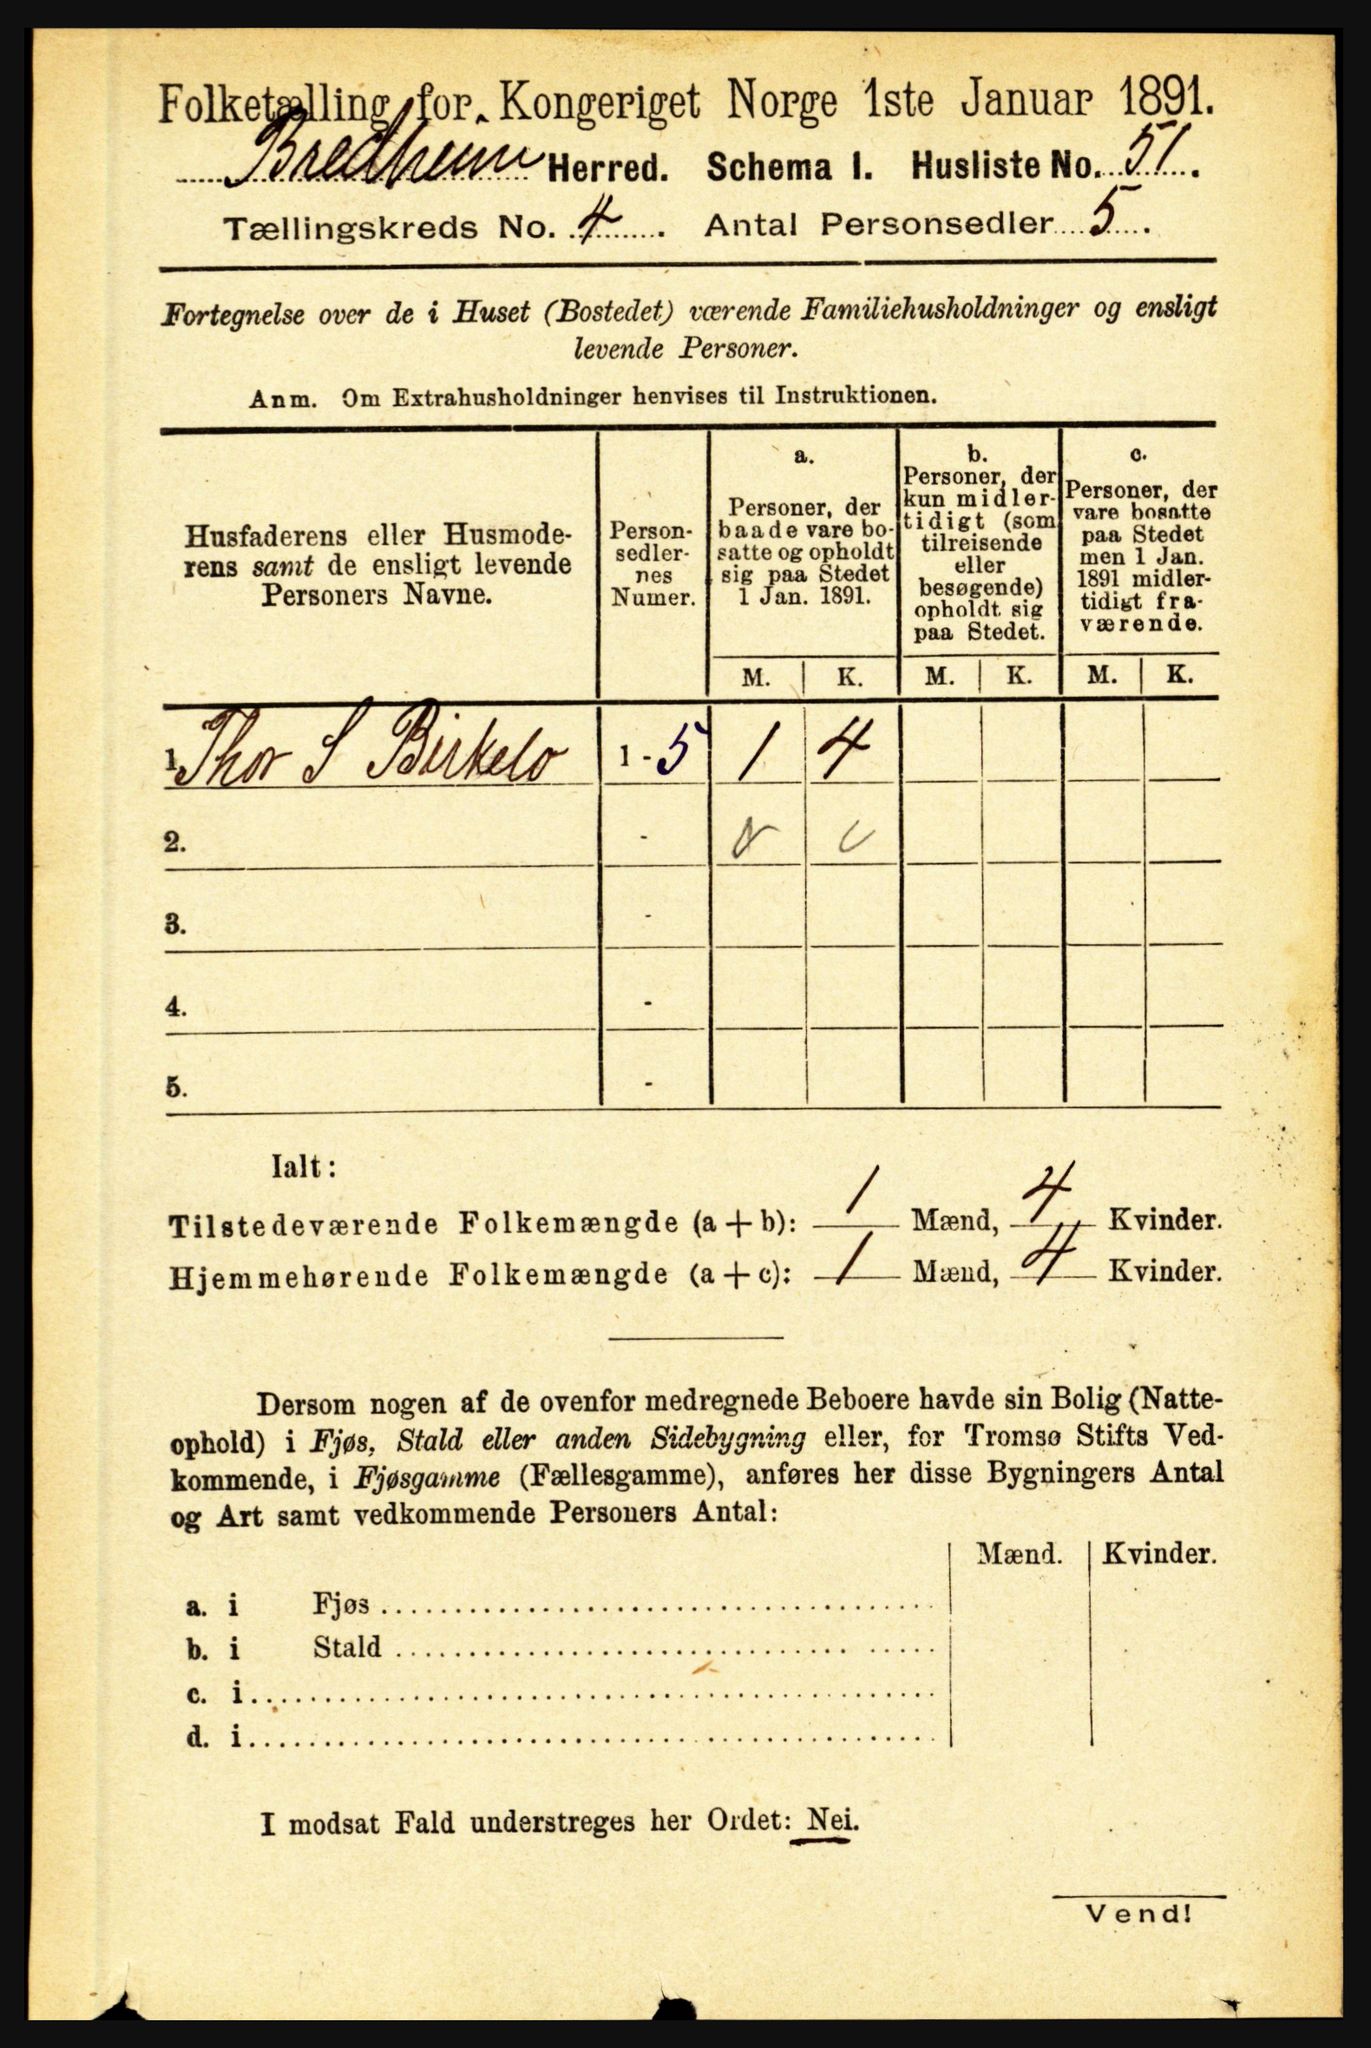 Folketælling for Kongeriget Norge 1ste Januar 1891.
Bredheim Herred. Schema I. Husliste No. 51.
Tællingskreds No. 4. Antal Personsedler 5.
Fortegnelse over de i Huset (Bostedet) værende Familiehusholdninger og ensligt
levende Personer.
Anm. Om Extrahusholdninger henvises til Instruktionen.
Husfaderens eller Husmode-
rens samt de ensligt levende
Personers Navne.
Person-
sedler-
nes
Numer.
a.
Personer, der
baade vare bo-
satte og opholdt
sig paa Stedet
1 Jan. 1891.
b.
Personer, der
kun midler-
tidigt (som
tilreisende
eller
besøgende)
opholdt sig
paa Stedet.
c.
Personer, der
vare bosatte
paa Stedet
men 1 Jan.
1891 midler-
tidigt fra-
værende.
M. K. M. K. M. K.
1. Thor S Birkelo 1 - 5 1 4
2. -
3. -
4. -
5. -
Ialt:
Tilstedeværende Folkemængde (a + b): 1 Mænd, 4 Kvinder.
Hjemmehørende Folkemængde (a + c): 1 Mænd, 4 Kvinder.
Dersom nogen af de ovenfor medregnede Beboere havde sin Bolig (Natte-
ophold) i Fjøs, Stald eller anden Sidebygning eller, for Tromsø Stifts Ved-
kommende, i Fjøsgamme (Fællesgamme), anføres her disse Bygningers Antal
og Art samt vedkommende Personers Antal:
Mænd. Kvinder.
a. i Fjøs
b. i Stald
c. i
d. i
I modsat Fald understreges her Ordet: Nei.
Vend!